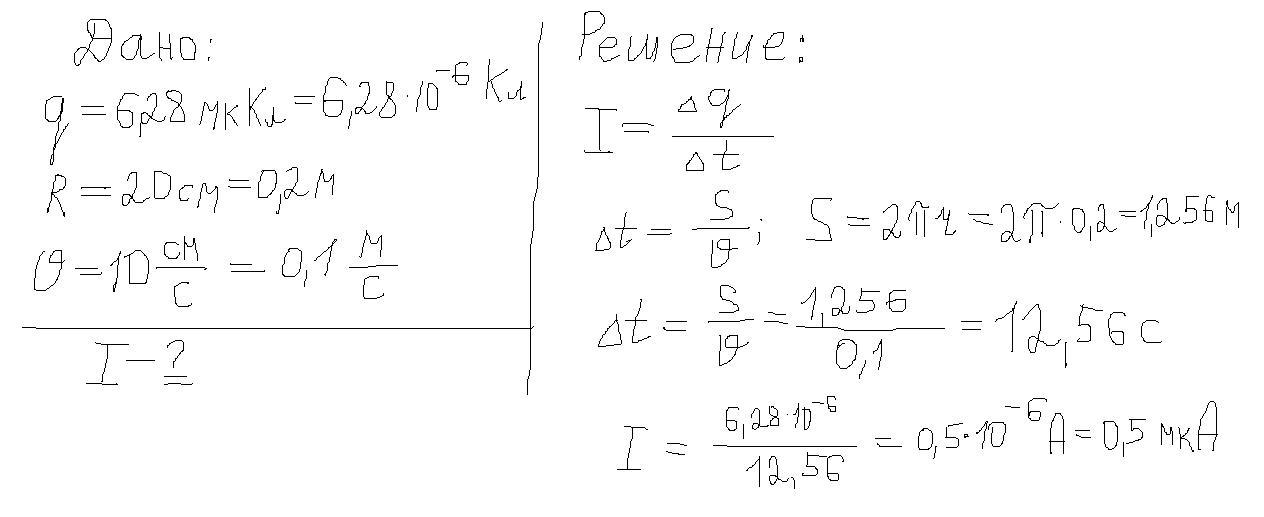 Дано:
q = 6,28 мкКл = 6,28·10⁻⁶ Кл
R = 20 см = 0,2 м
υ = 10 см/с = 0,1 м/с
I - ?
Решение:
I = Δq/Δt
Δt = S/υ; S = 2πr = 2π·0,2 = 1,256 м
Δt = S/υ = 1,256/0,1 = 12,56 с
I = 6,28·10⁻⁶/12,56 = 0,5·10⁻⁶ А = 0,5 мкА